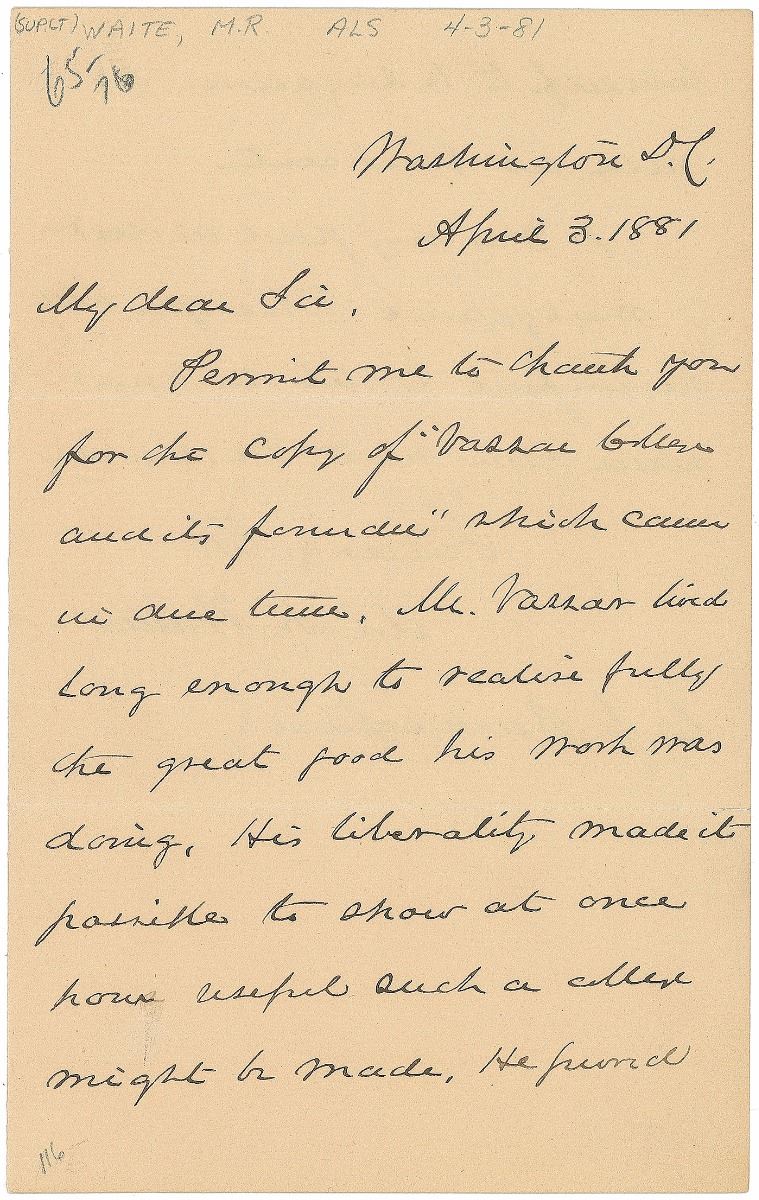 (SUPCT) WAITE, M.R. ALS 4-3-81
65 76
Washington D.C.
April 3. 1881
My dear Sir,
Permit me to thank you
for the copy of "Vassar College
and its founder" which came
in due time. Mr. Vassar lived
long enough to realise fully
the great good his work was
doing. His liberality made it
possible to show at once
how useful such a college
might be made. He proved
116